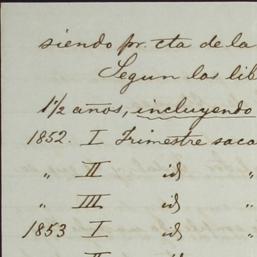 siendo pr. cta de la
Segun los lib
1 1/2 años, incluyendo
1852. I Trimestre saca
" II id "
" III id "
1853 I id "
" II id